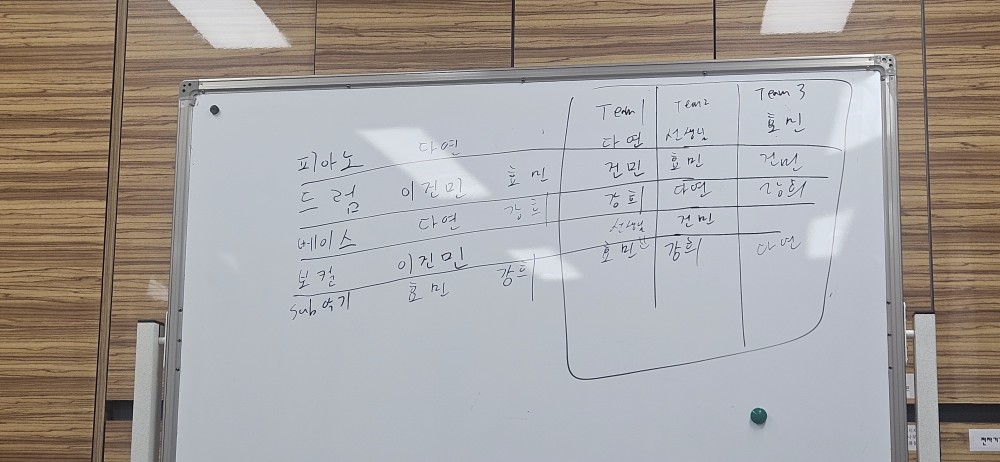 Team 1 Team 2 Team 3
피아노 다연 다연 선생님 효민
드럼 이건민 효민 건민 효민 건민
베이스 다연 강희 강희 다연 강희
보컬 이건민 선생님 건민
sub악기 효민 강희 효민 강희 다연